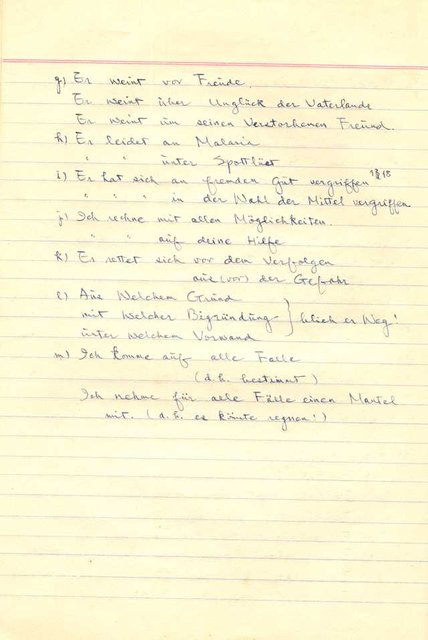 g) Er weint vor Freude.
Er weint über Unglück der Vaterlande
Er weint um seinen Verstorbenen Freund.
h) Er leidet an Malaria
" " unter Spottlüst
i) Er hat sich an fremden Güt vergriffen
" " " in der Wahl der Mittel vergriffen
j) Ich rechne mit allen Möglichkeiten.
" " auf deine Hilfe
k) Er rettet sich vor dem Verfolgen
aus (vor) der Gefahr
l) Aus Welchem Gründ
mit Welcher Bigründung } blieb er Weg!
unter welchem Vorwand
m) Ich komme auf alle Falle
(d.h. bestimmt)
Ich nehme für alle Fälle einen Mantel
mit. (d.h. es könnte regnen!)